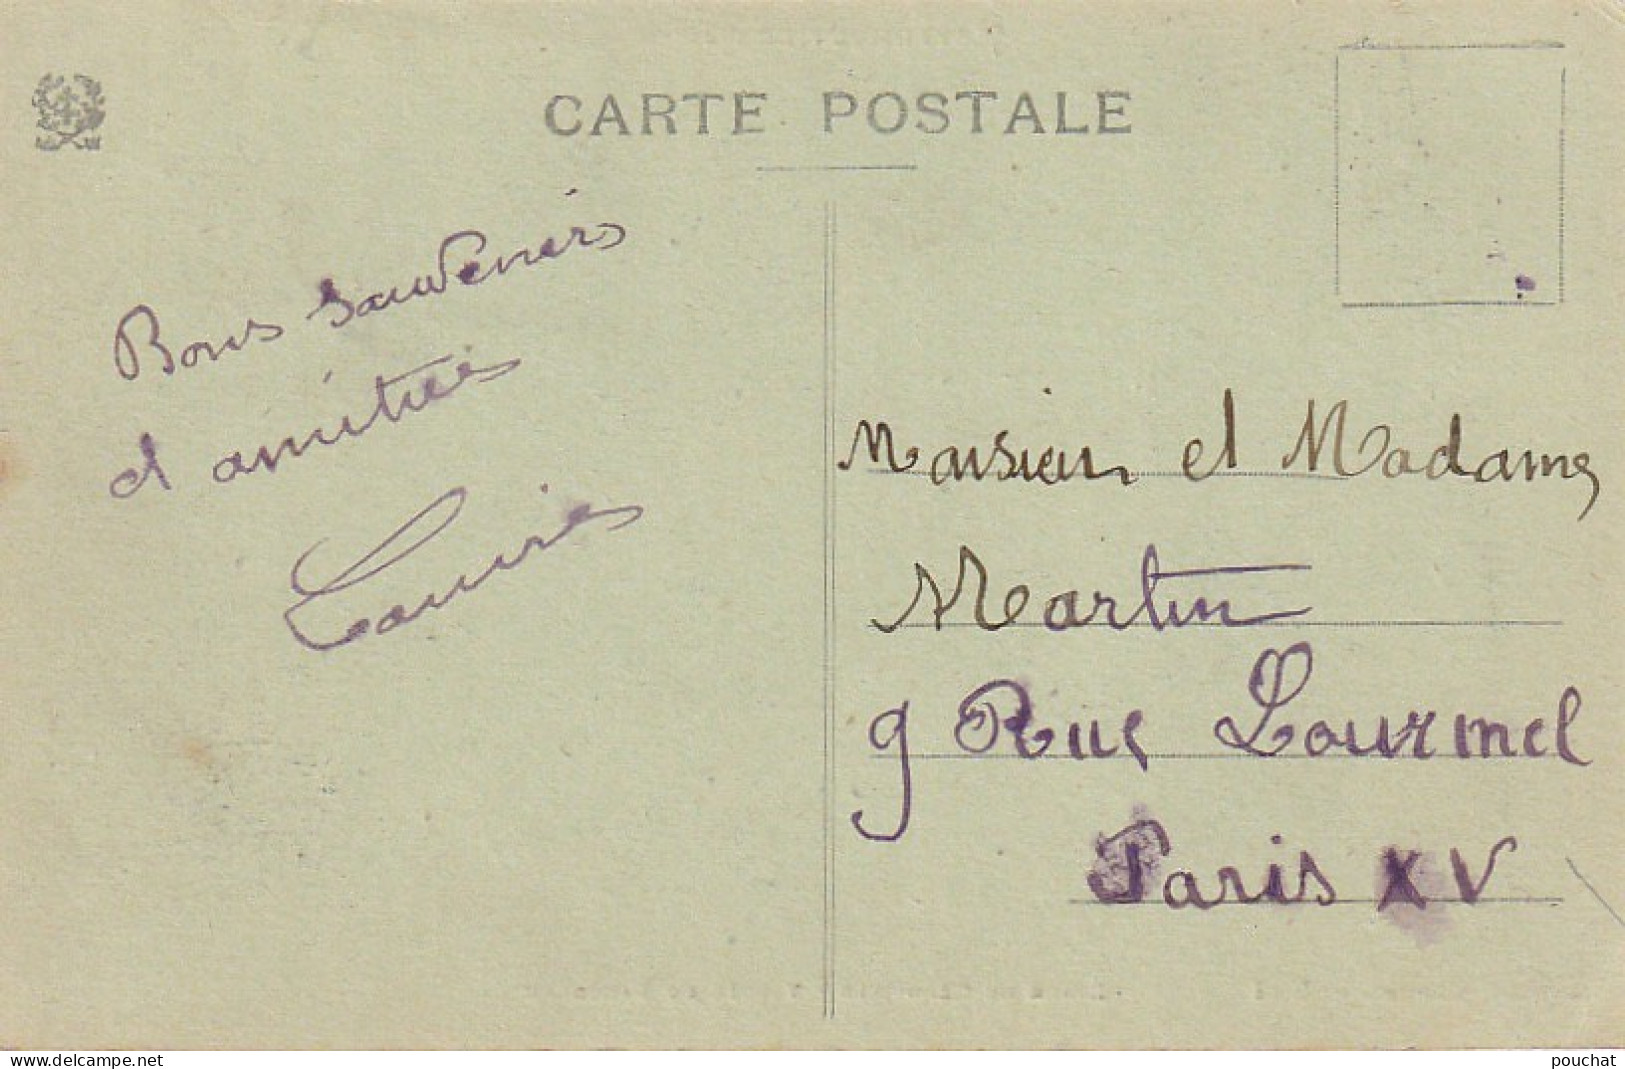 CARTE POSTALE
Bons souvenirs
et amitiés
Monsieur et Madame
Martin
9 Rue Lourmel
Paris XV
www.delcampe.net
pouchat